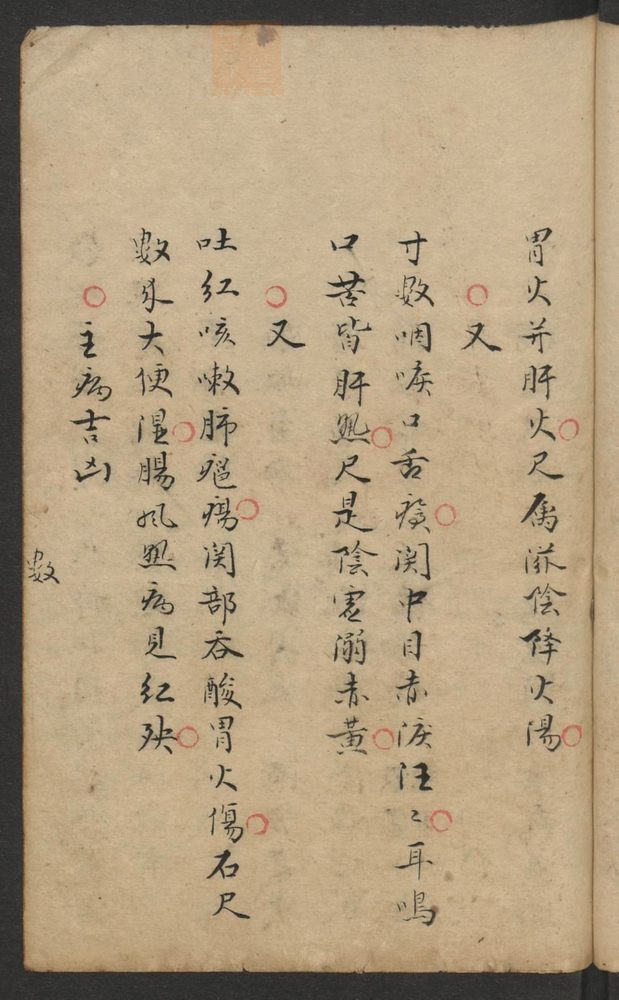 胃火并肝火尺属滋陰降火湯
又
寸数咽喉口舌瘡関中目赤淚汪〻耳鳴
口苦皆肝热尺是陰虚溺赤黄
又
吐紅咳嗽肺癰瘍関部吞酸胃火傷右尺
数来大便湿腸風热病見紅殃
主病吉凶
数